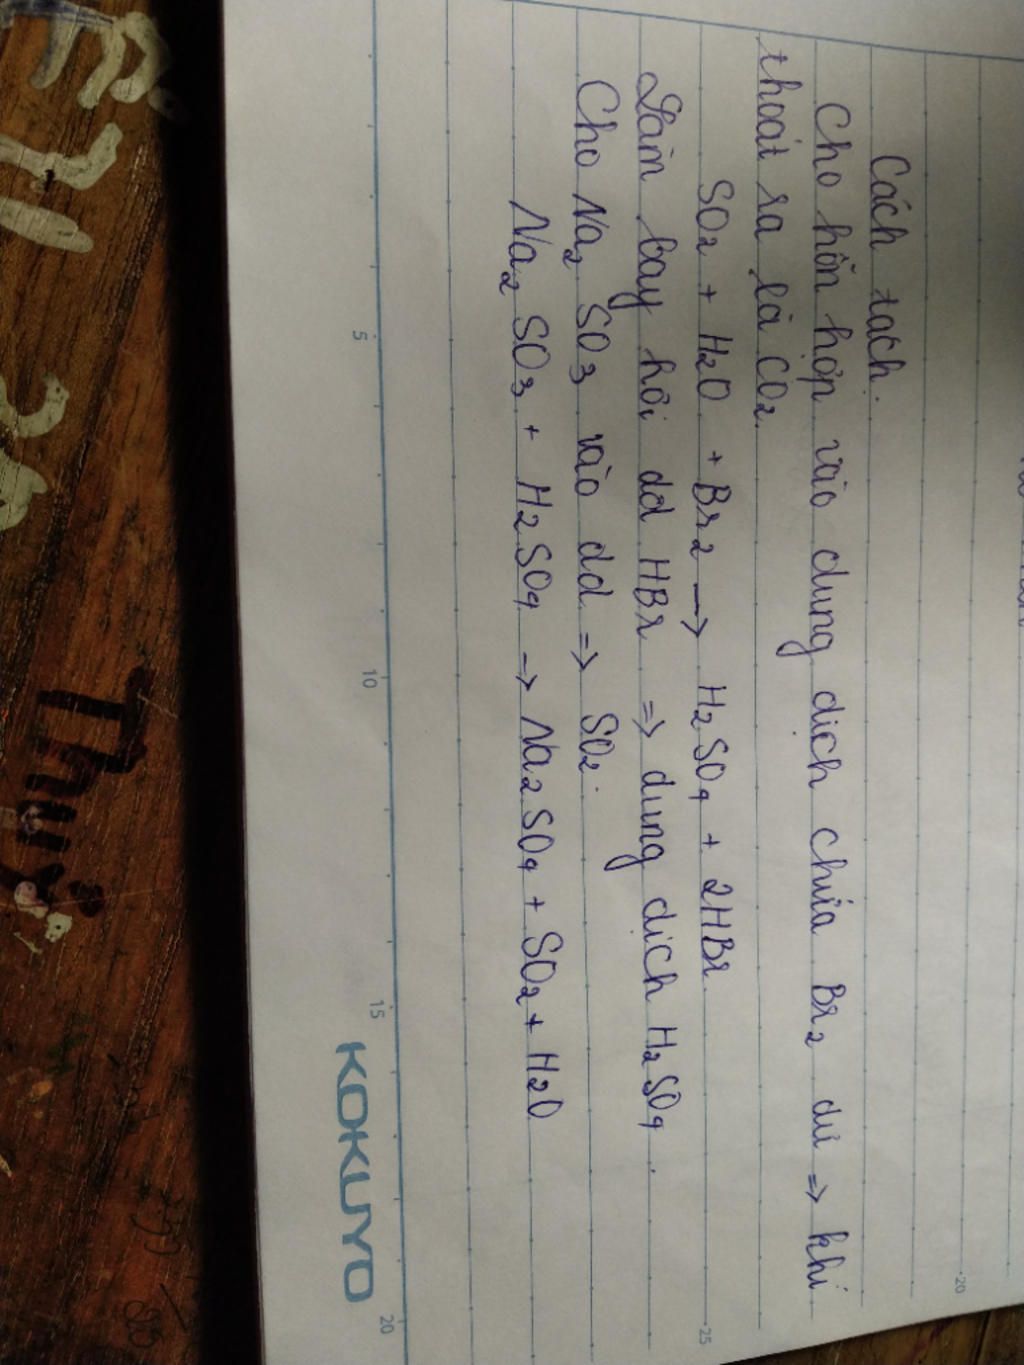 Cách tách.
Cho hỗn hợp vào dung dịch chứa Br2 dư => khí
thoát ra là CO2.
SO2 + H2O + Br2 -> H2SO4 + 2HBr.
Làm bay hơi dd HBr => dung dịch H2SO4.
Cho Na2SO3 vào dd => SO2.
Na2SO3 + H2SO4 -> Na2SO4 + SO2 + H2O
5 10 15 20
KOKUYO
20
25
Thuý